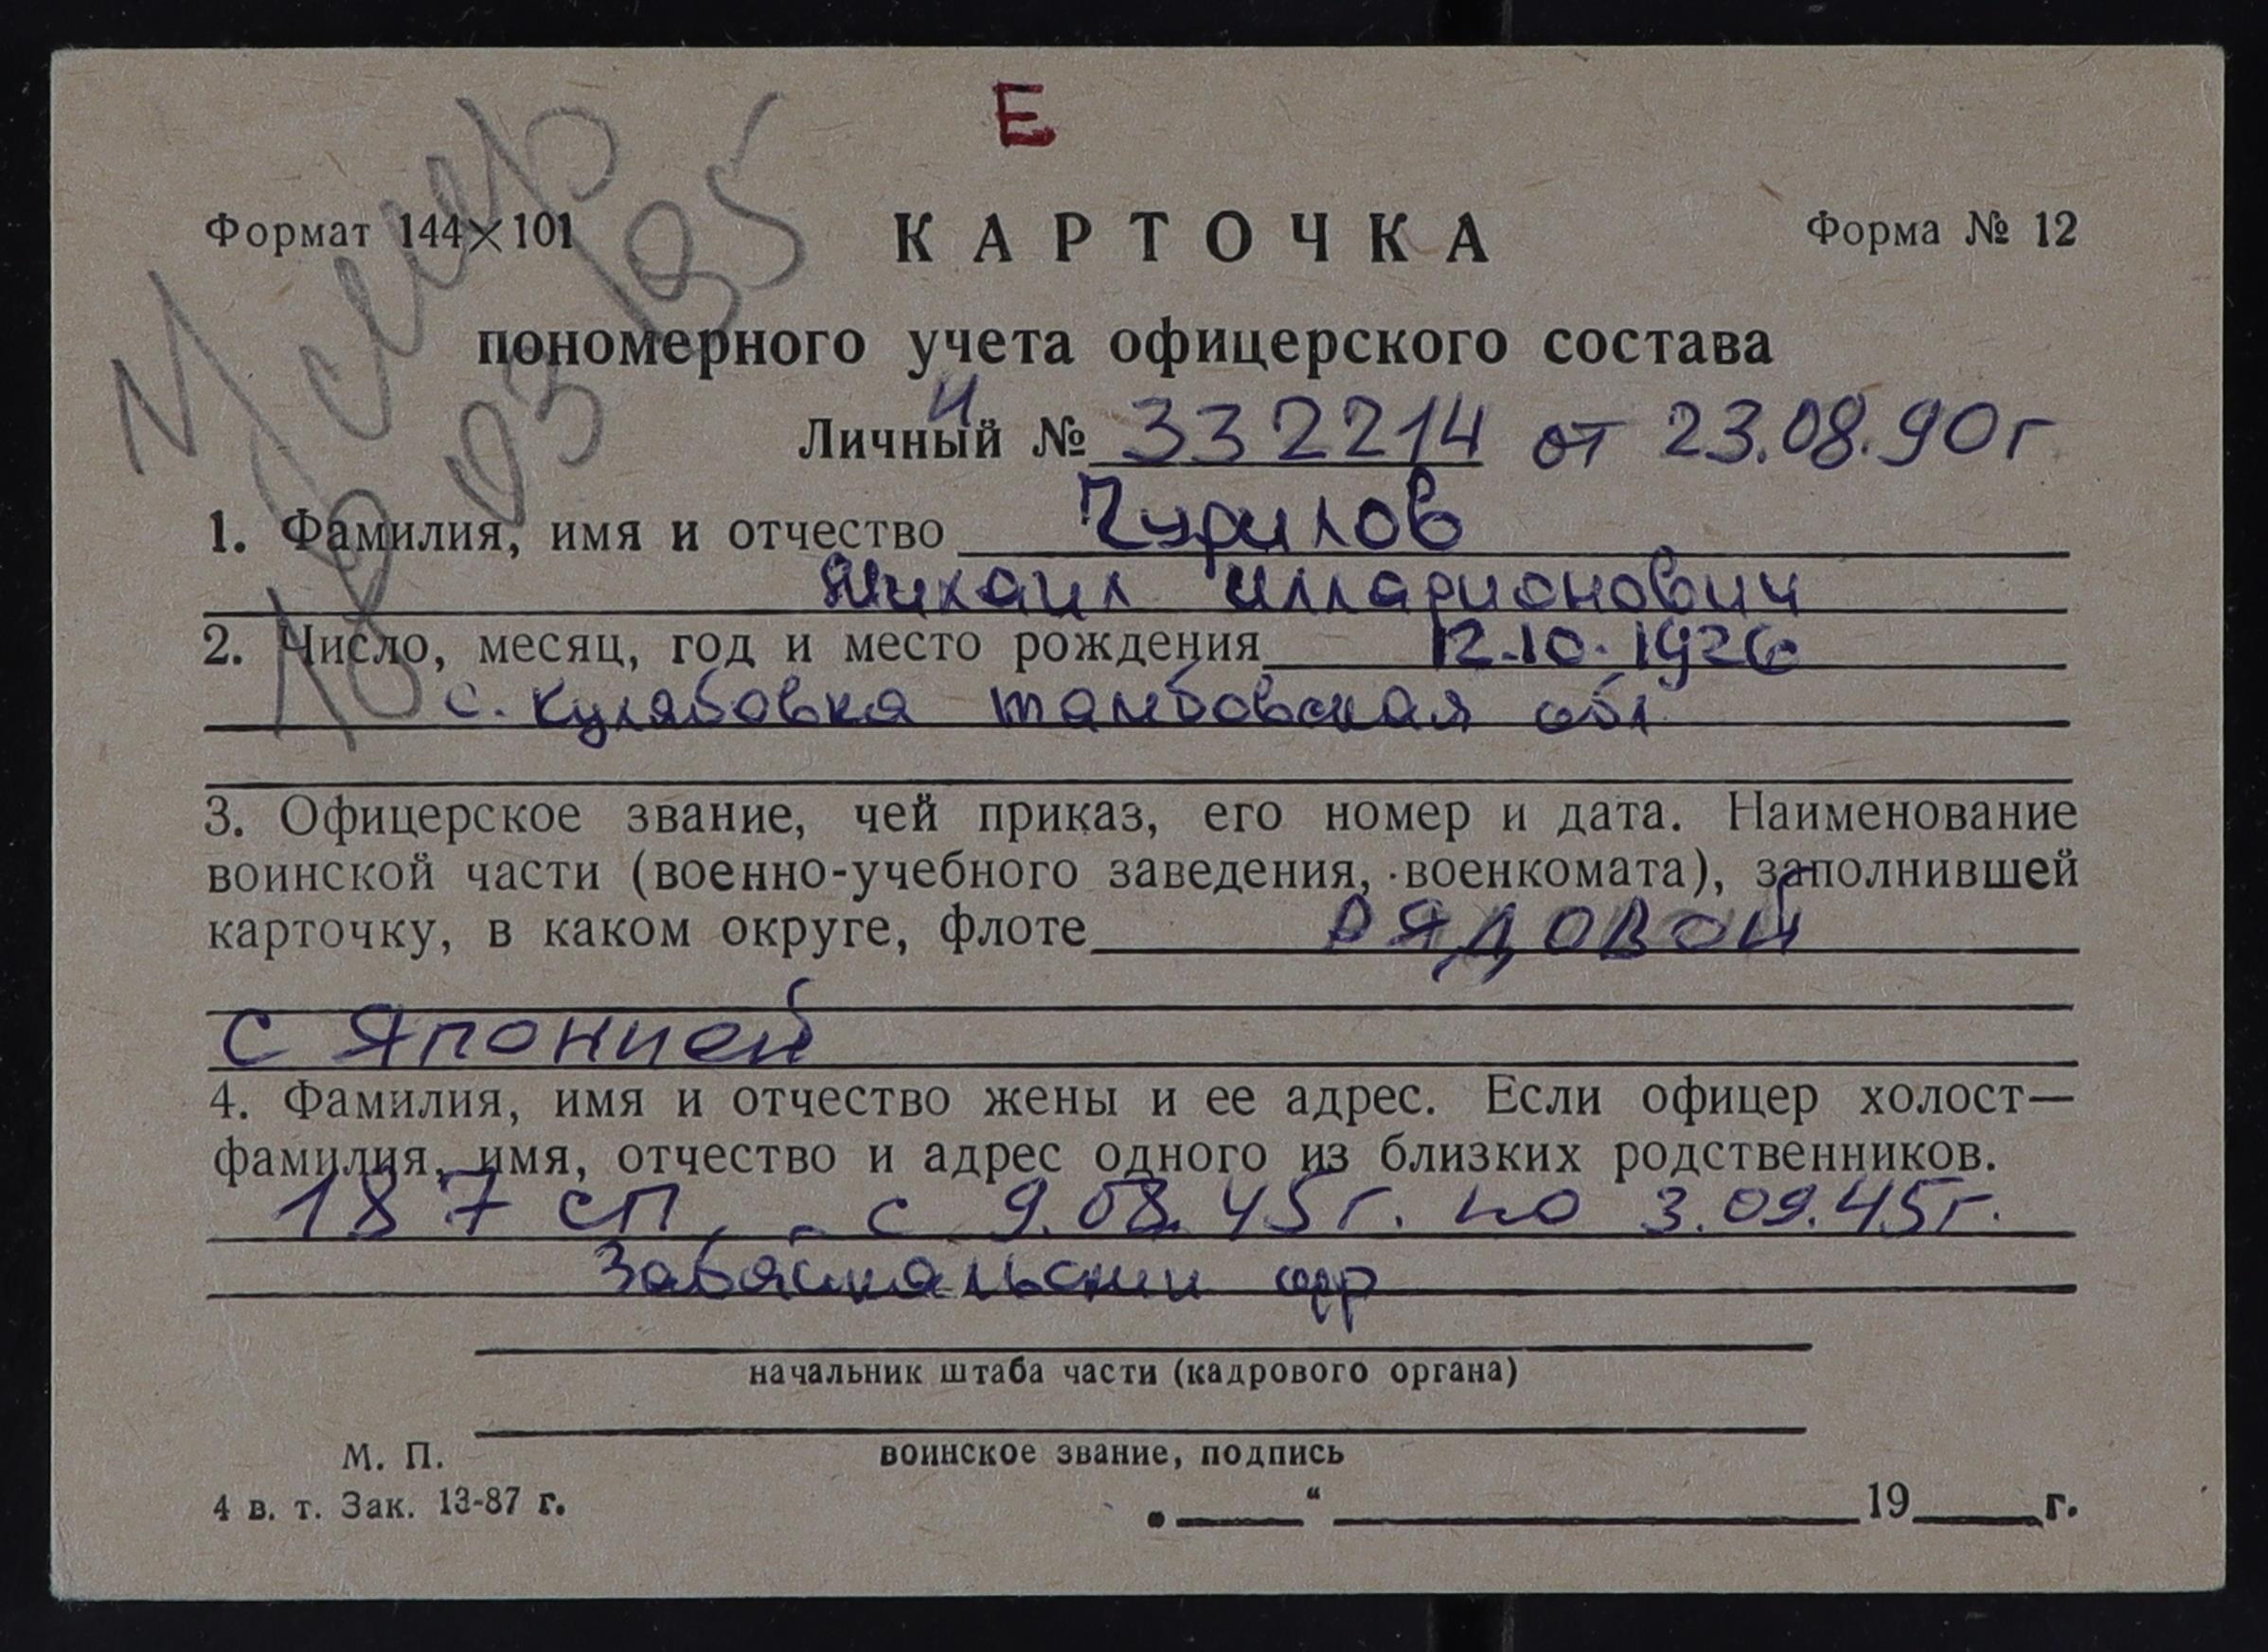 Е
Умер
18 03 195
Формат 144×101
КАРТОЧКА
Форма № 12
пономерного учета офицерского состава
и
Личный № 332214 от 23.08.90г
1. Фамилия, имя и отчество Чурилов
Михаил Илларионович
2. Число, месяц, год и место рождения 12.10.1926
с. Кулябовка тамбовская обл
3. Офицерское звание, чей приказ, его номер и дата. Наименование
воинской части (военно-учебного заведения, военкомата), заполнившей
карточку, в каком округе, флоте рядовой
с Японией
4. Фамилия, имя и отчество жены и ее адрес. Если офицер холост—
фамилия, имя, отчество и адрес одного из близких родственников.
187 сп, - с 9.08.45г. по 3.09.45г.
Забайкальский фр
начальник штаба части (кадрового органа)
воинское звание, подпись
М. П.
4 в. т. Зак. 13-87 г.
„ “ 19 г.